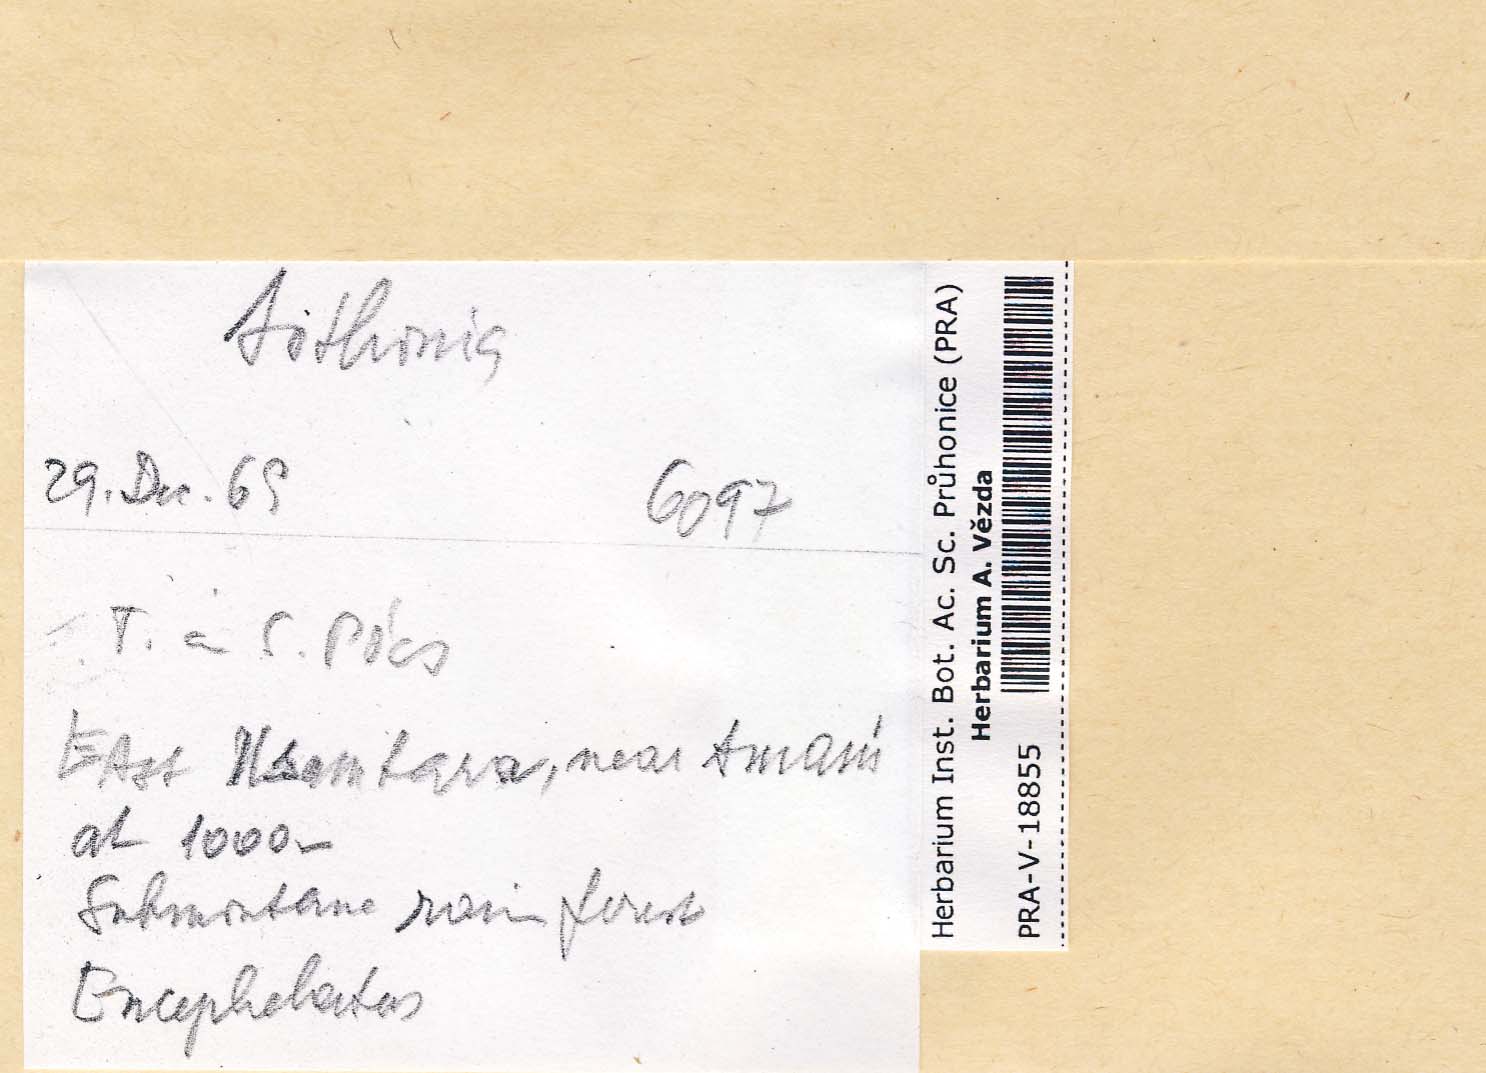 Arthonia
29. Dec. 69
6097
T. a S. Pócs
East Usambara, near Amani
at 1000
Submontane rain forest
Encephalartos
Herbarium Inst. Bot. Ac. Sc. Průhonice (PRA)
Herbarium A. Vězda
PRA-V-18855